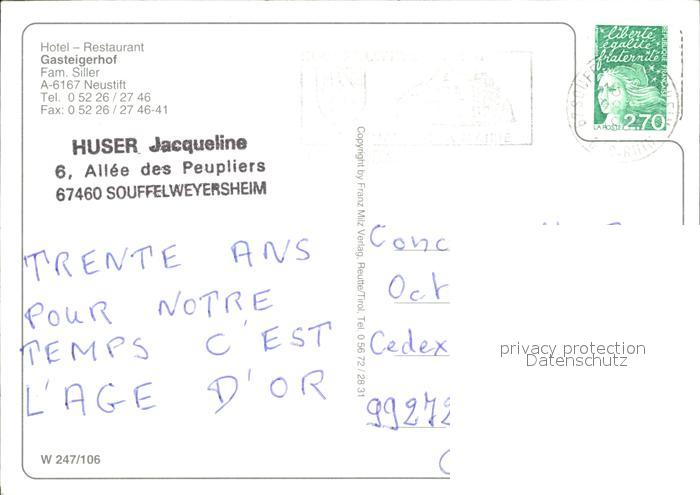 Hotel – Restaurant
Gasteigerhof
Fam. Siller
A-6167 Neustift
Tel. 0 52 26 / 27 46
Fax: 0 52 26 / 27 46-41
HUSER Jacqueline
6, Allée des Peupliers
67460 SOUFFELWEYERSHEIM
TRENTE ANS
POUR NOTRE
TEMPS C'EST
L'AGE D'OR
W 247/106
Copyright by Franz Milz Verlag, Reutte/Tirol, Tel. 0 56 72 / 28 31
liberté
égalité
fraternité
REPUBLIQUE FRANÇAISE
LA POSTE
2,70
Conc
Oct
Cedex
99272
privacy protection
Datenschutz